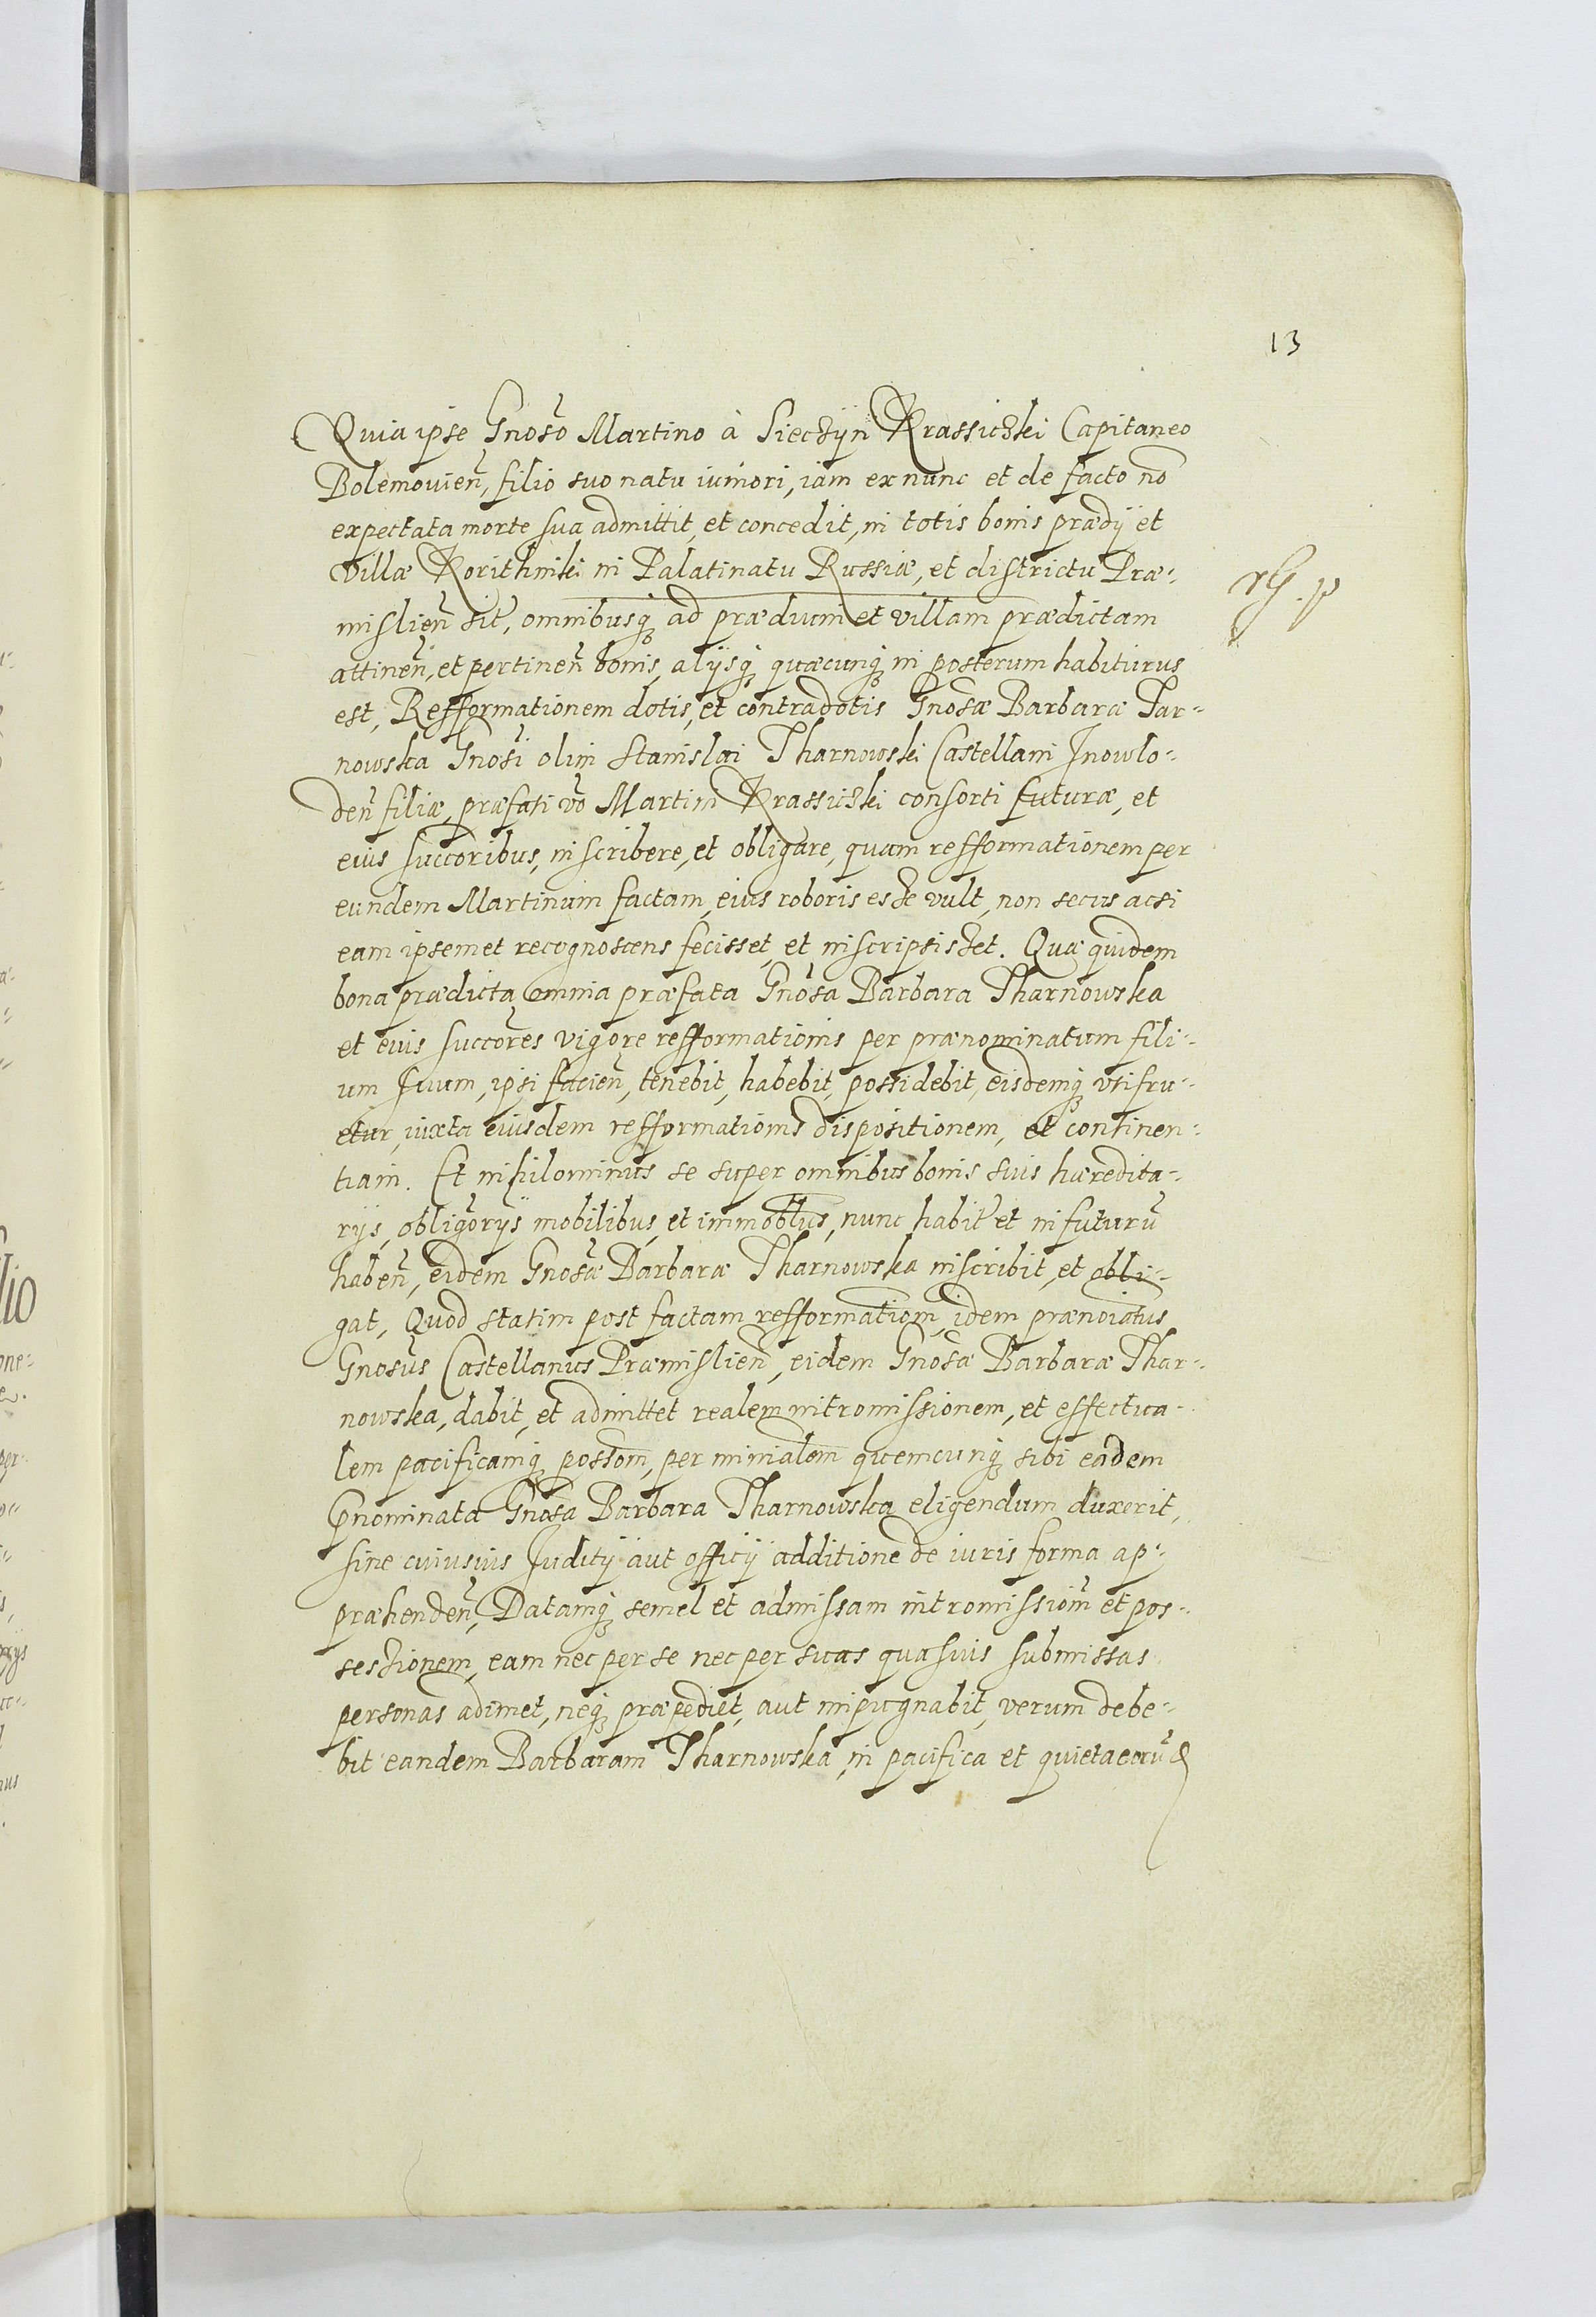 13
Quia ipse Gnoso Martino à Sieczÿn Krassiczki Capitaneo
Bolemouien̄, filio suo natu iuniori, iam ex nunc et de facto nō
expectata morte sua admittit, et concedit, in totis bonis prædÿ et
villæ Korithniki in Palatinatu Russiæ, et districtu Præ-
mislien̄ sit̄, omnibusq₃ ad prædium et villam prædictam
attinen̄, et pertinen̄ bonis, alÿsq₃ quæcunq₃ in posterum habiturus
est, Refformationem dotis, et contradotis Gnosæ Barbaræ Tar-
nowska Gnosi olim Stanislai Tharnowski Castellani Jnowlo-
den̄ filiæ, præfati vō Martini Krassiczki consorti futuræ, et
eius succoribus, inscribere, et obligare, quam refformationem per
eundem Martinum factam, eius roboris esse vult, non secus acsi
eam ipsemet recognoscens fecisset, et inscripsisset. Quæ quidem
bona prædicta omnia præfata Gnosa Barbara Tharnowska
et eius succores vigore refformationis per prænominatum fili-
um suum, ipsi facien̄, tenebit, habebit, possidebit, eisdemq₃ vtifru-
etur, iuxta eiusdem refformationis dispositionem, et continen-
tiam. Et nihilominus se super omnibus bonis suis hæredita-
rÿs, obligorÿs mobilibus, et immobl̄us, nunc habit̄ et in futurū
haben̄, eidem Gnosæ Barbaræ Tharnowska inscribit, et obli-
gat, Quod statim post factam refformationm̄, idem prænoiatus
Gnosus Castellanus Præmislien̄, eidem Gnosæ Barbaræ Thar-
nowska, dabit, et admittet realem intromissionem, et effectua-
lem pacificamq₃ possom̄, per minialem̄ quemcunq₃ sibi eadem
pnominata Gnosa Barbara Tharnowska eligendum duxerit,
sine cuiusuis Judicÿ aut officÿ additione de iuris forma ap-
præhenden̄, Datamq₃ semel et admissam intromissiom̄ et pos-
sessionem, eam nec per se nec per suas quasuis submissas
personas adimet, neq₃ præpediet, aut inpugnabit, verum debe-
bit eandem Barbaram Tharnowska, in pacifica et quieta eorū